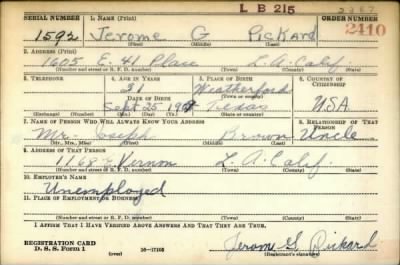 L B 215
SERIAL NUMBER 1. NAME (Print) ORDER NUMBER
1592 Jerome G Pickard 2410
(First) (Middle) (Last)
2. ADDRESS (Print)
1605 E. 41 Place L. A. Calif.
(Number and street or R. F. D. number) (Town) (County) (State)
3. TELEPHONE 4. AGE IN YEARS 5. PLACE OF BIRTH 6. COUNTRY OF CITIZENSHIP
31 Weatherford
DATE OF BIRTH (Town or county)
Sept 25 Texas USA
(Exchange) (Number) (Mo.) (Day) (Yr.) (State or country)
7. NAME OF PERSON WHO WILL ALWAYS KNOW YOUR ADDRESS 8. RELATIONSHIP OF THAT PERSON
Mr. Joseph Brown Uncle
(Mr., Mrs., Miss) (First) (Middle) (Last)
9. ADDRESS OF THAT PERSON
Vernon L. A. Calif.
(Number and street or R. F. D. number) (Town) (County) (State)
10. EMPLOYER'S NAME
Unemployed
11. PLACE OF EMPLOYMENT OR BUSINESS
(Number and street or R. F. D. number) (Town) (County) (State)
I AFFIRM THAT I HAVE VERIFIED ABOVE ANSWERS AND THAT THEY ARE TRUE.
REGISTRATION CARD
D. S. S. Form 1 16-17105 Jerome G Pickard
(Registrant's signature)